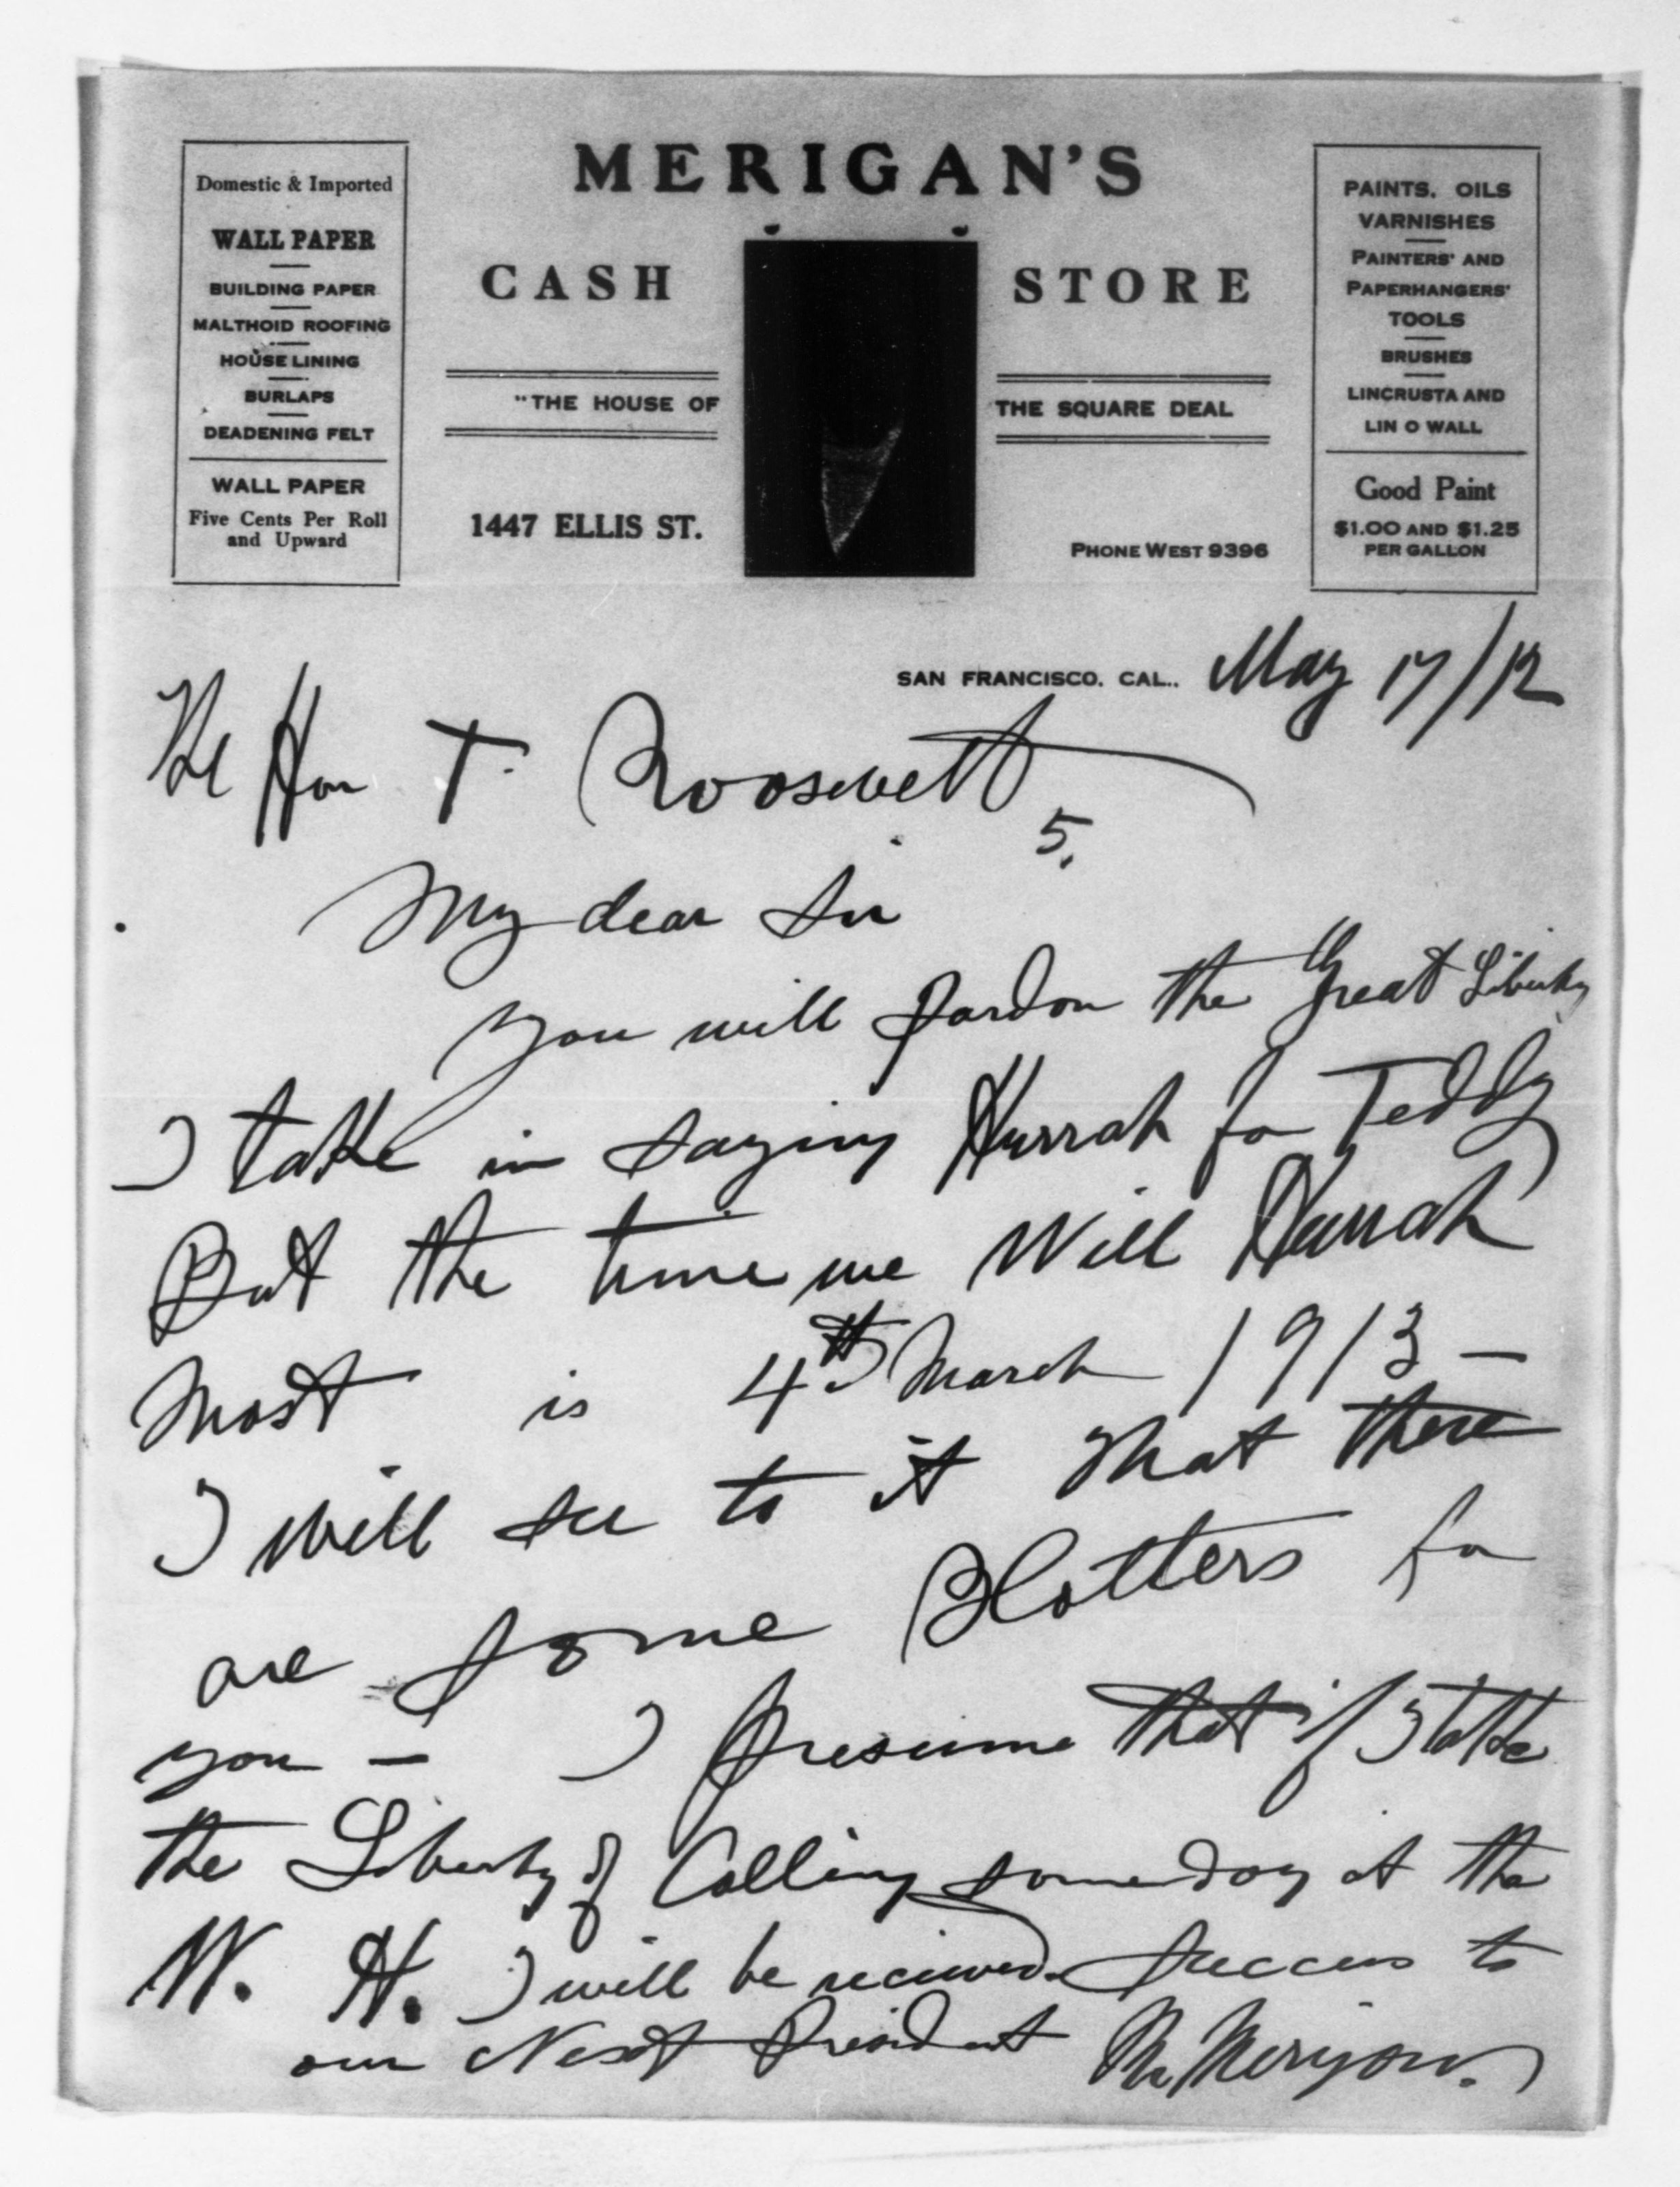 MERIGAN'S
CASH STORE
"THE HOUSE OF THE SQUARE DEAL
1447 ELLIS ST.
PHONE WEST 9396
Domestic & Imported
WALL PAPER
BUILDING PAPER
MALTHOID ROOFING
HOUSE LINING
BURLAPS
DEADENING FELT
WALL PAPER
Five Cents Per Roll
and Upward
PAINTS. OILS
VARNISHES
PAINTERS' AND
PAPERHANGERS'
TOOLS
BRUSHES
LINCRUSTA AND
LIN O WALL
Good Paint
$1.00 AND $1.25
PER GALLON
SAN FRANCISCO. CAL.. May 17/12
The Hon T. Roosevelt
5.
My dear Sir
You will pardon the Great Liberty
I take in saying Hurrah for Teddy
But the time we Will Hurrah
most is 4th March 1913 —
I will see to it that there
are some Blotters for
you — I presume that if I take
the Liberty of Calling someday at the
W. H. I will be recieved. Success to
our Next President M. Merigan.